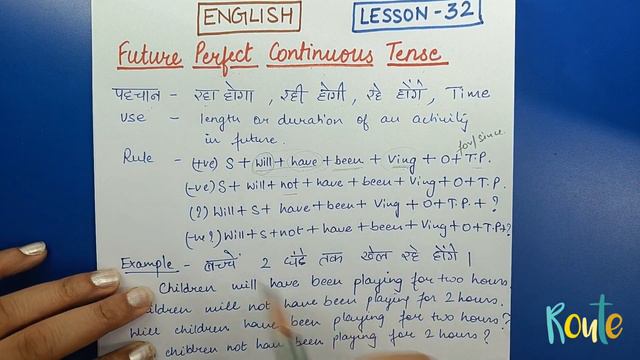 ENGLISH
LESSON-32
Future Perfect Continuous Tense
पहचान - रहा होगा, रही होगी, रहे होंगे, Time
Use - length or duration of an activity
in future.
for/since
Rule - (+ve) S + will + have + been + Ving + O + T.P.
(-ve) S + will + not + have + been + Ving + O + T.P.
(?) Will + S + have + been + Ving + O + T.P. + ?
(-ve?) Will + S + not + have + been + Ving + O + T.P. + ?
Example - बच्चे 2 घंटे तक खेल रहे होंगे।
Children will have been playing for two hours.
children will not have been playing for 2 hours.
Will children have been playing for two hours?
children not have been playing for 2 hours?
Route